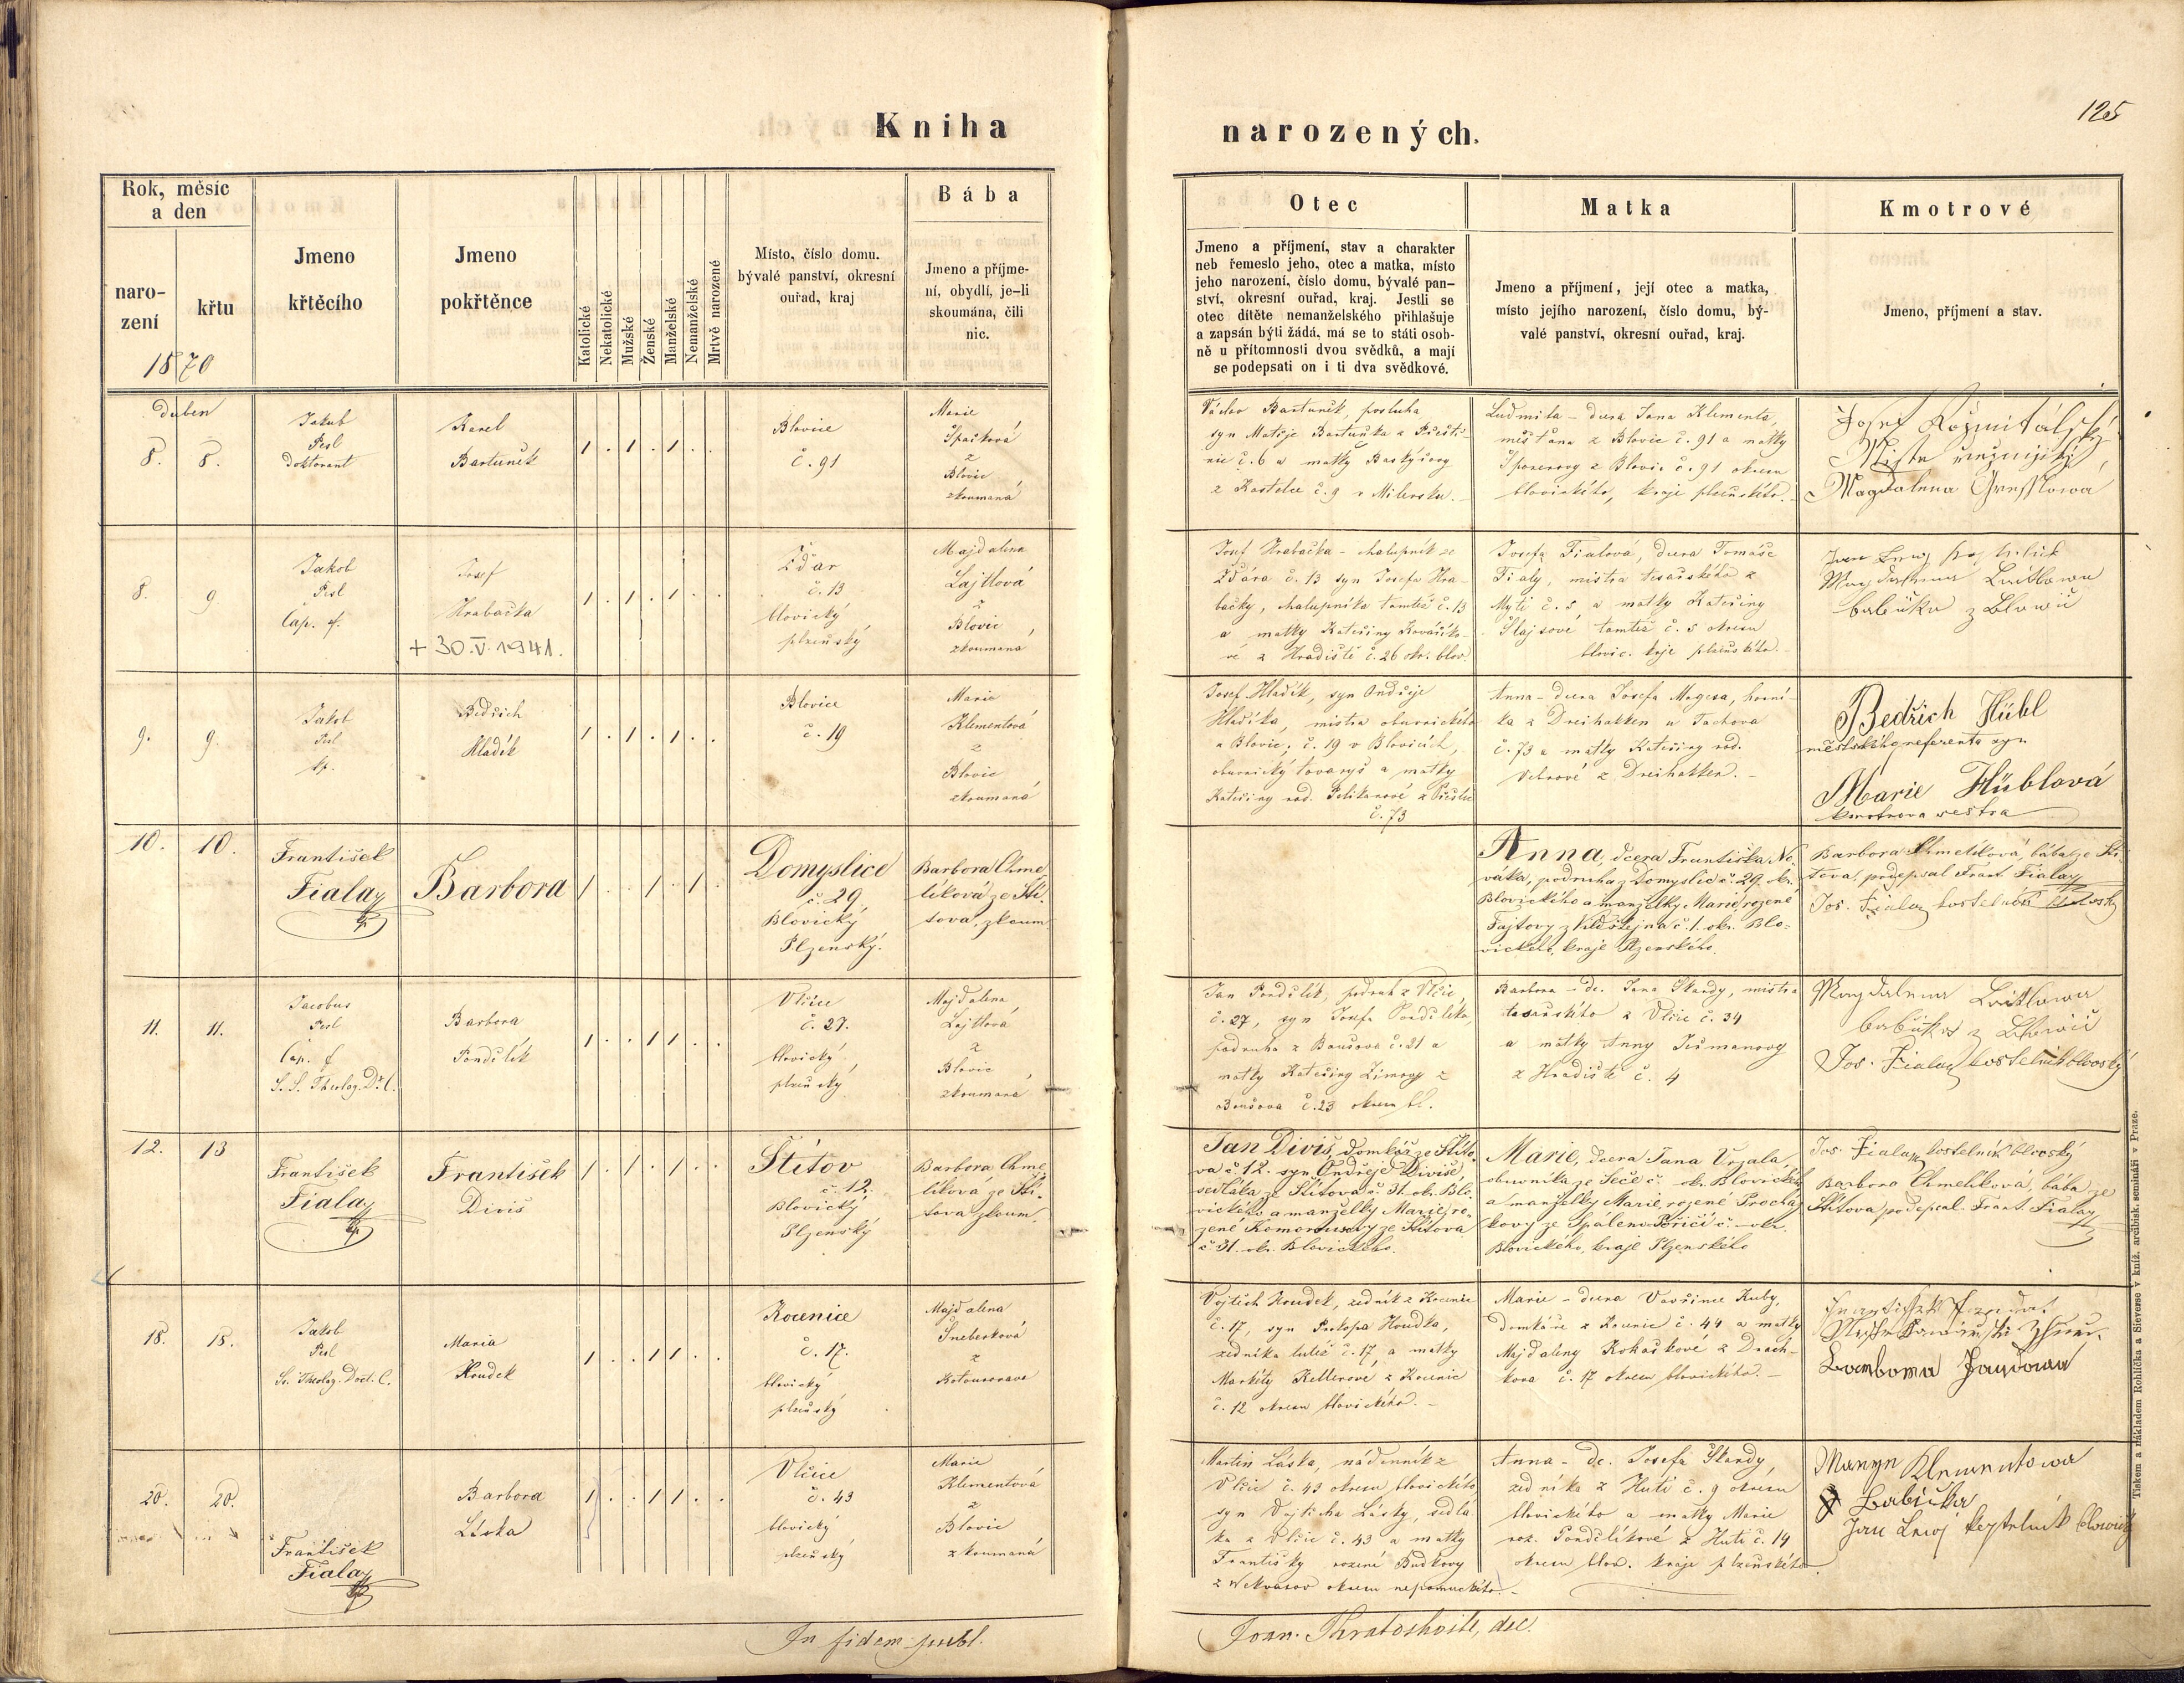 125
Kniha
narozených.
Rok, měsíc
a den
naro-
zení
křtu
1870
Jmeno
křtěcího
Jmeno
pokřtěnce
Katolické
Nekatolické
Mužské
Ženské
Manželské
Nemanželské
Mrtvě narozené
Místo, číslo domu.
bývalé panství, okresní
ouřad, kraj
Bába
Jmeno a příjme-
ní, obydlí, je-li
skoumána, čili
nic.
Otec
Jmeno a příjmení, stav a charakter
neb řemeslo jeho, otec a matka, místo
jeho narození, číslo domu, bývalé pan-
ství, okresní ouřad, kraj. Jestli se
otec dítěte nemanželského přihlašuje
a zapsán býti žádá, má se to státi osob-
ně u přítomnosti dvou svědků, a mají
se podepsati on i ti dva svědkové.
Matka
Jmeno a příjmení, její otec a matka,
místo jejího narození, číslo domu, bý-
valé panství, okresní ouřad, kraj.
Kmotrové
Jmeno, příjmení a stav.
duben
8. 8.
Jakub
Pesl
doktorant
Karel
Bartuněk
Blovice
č. 91
Marie
Špačková
z
Blovic
zkoumaná
Václav Bartuněk, posluha
syn Matěje Bartuňka z
č. 6 a matky
z Kostelce č. 9 Milevska.
Ludmila - dcera Jana Klementa,
měšťana z Blovic č. 91 a matky
z Blovic č. 91 okresu
blovického, kraje plzeňského.
Josef Rožmitálský
Magdalena
8. 9
Jakob
Pesl
Cap.
Josef
Hrabačka
+ 30.V. 1941.
Ždár
č. 13
blovický
plzeňský
Majdalena
Lajtlová
z
Blovic
zkoumaná
Josef Hrabačka - chalupník ze
Ždára č. 13 syn Josefa Hra-
bačky, chalupníka tamtéž č. 13
a matky Kateřiny Kovářiko-
vé z Hradiště č. 26 okr. blov.
Josefa Fialová, dcera Tomáše
Fialy, mistra tesařského z
Mytí č. 5 a matky Kateřiny
Šlajsové tamtéž č. 5 okresu
blovic. kraje plzeňského.
Magdalena Laitlowa
babička z Blowic
9. 9
Jakob
Pesl
Bedřich
Hladík
Blovice
č. 19
Marie
Klementová
z
Blovic
zkoumaná
Josef Hladík, syn Ondřeje
Hladíka, mistra obuvnického
z Blovic, č. 19 v Blovicích,
obuvnický tovaryš a matky
Kateřiny rod. Pelikanové z
č. 73
Anna - dcera Josefa Magera, horní-
ka z Dreihakken u Tachova
č. 73 a matky Kateřiny rod.
z Dreihakken.
Bedřich Hübl
městského referenta syn
Marie Hüblová
kmotrova sestra
10. 10.
František
Fiala
Barbora
Domyslice
č. 29,
Blovický
Plzenský.
Barbora Chme-
líková ze Ští-
tova, zkoum.
Anna, dcera Františka No-
váka, podruha z Domyslic č. 29. okr.
Blovického a manželky Marie, rozené
Fajtovy z Vildštejna č. 1. okr. Blo-
vického, kraje Plzenského.
Barbora Chmelíková, bába ze Ští-
tova, podepsal Frant. Fiala
Jos. Fiala kostelník blovský
11. 11.
Jacobus
Pesl
Cap.
S. S. Theolog. Dr. C.
Barbora
Pondělík
Vlčice
č. 27.
blovický
plzeňský
Majdalena
Lajtlová
z
Blovic
zkoumaná
Jan Pondělík, podruh z Vlčic
č. 27, syn Josefa Pondělíka,
podruha z Boušova č. 21 a
matky Kateřiny Zimovy z
Boušova č. 23 okresu bl.
Barbora - dc. Jana Škardy, mistra
tesařského z Vlčic č. 34
a matky Anny
z Hradiště č. 4
Magdalena Laitlowa
babička z Blowic
Jos. Fiala kostelník blovský
12. 13
František
Fiala
František
Diviš
Štítov
č. 12.
Blovický
Plzenský
Barbora Chme-
líková ze Ští-
tova zkoum.
Jan Diviš, domkář ze Štíto-
va č. 12. syn Ondřeje Diviše,
sedláka ze Štítova č. 31. okr. Blo-
vického a manželky Marie, ro-
zené Komorousovy ze Štítova
č 31. okr. Blovického.
Marie, dcera Jana Vrzala,
obuvníka ze Seče č. okr. Blovického
a manželky Marie, rozené Procház-
kovy ze Spáleného Poříčí č. — okr.
Blovického, kraje Plzenského
Jos. Fiala kostelník blovský
Barbora Chmelíková, bába ze
Štítova podepsal Frant. Fiala
18. 18.
Jakob
Pesl
Ss. Theolog. Doct. C.
Maria
Houdek
Kocenice
č. 17.
blovický
plzeňský
Majdalena
Šneberková
z
Kotousova
Vojtěch Houdek, zedník z Kocenic
č. 17, syn Prokopa Houdka,
zedníka tutéž č. 17, a matky
Markéty Kellerové z Kocenic
č. 12 okresu blovického.
Marie - dcera Vavřince Kuby,
domkáře z Kocenic č. 44 a matky
Majdaleny Kohaškové z Drach-
kova č. 17 okresu blovického.
20. 20.
František
Fiala
Barbora
Láska
Vlčice
č. 43
blovický
plzeňský
Marie
Klementová
z
Blovic
zkoumaná
Martin Láska, nádenník z
Vlčic č. 43 okresu blovického,
syn Vojtěcha Lásky, sedlá-
ka z Vlčic č. 43 a matky
Františky rozené Budkovy
z Nekvasov okresu nepomuckého.
Anna - dc. Josefa Škardy,
zedníka z Hutí č. 9 okresu
blovického a matky Marie
roz. Pondělíkové z Hutí č. 14
okresu blov. kraje plzeňského.
Klementowa
Babička
In fidem publ.
Tiskem a nákladem Rohlíčka a Sieverse v kníž. arcibisk. semináři v Praze.